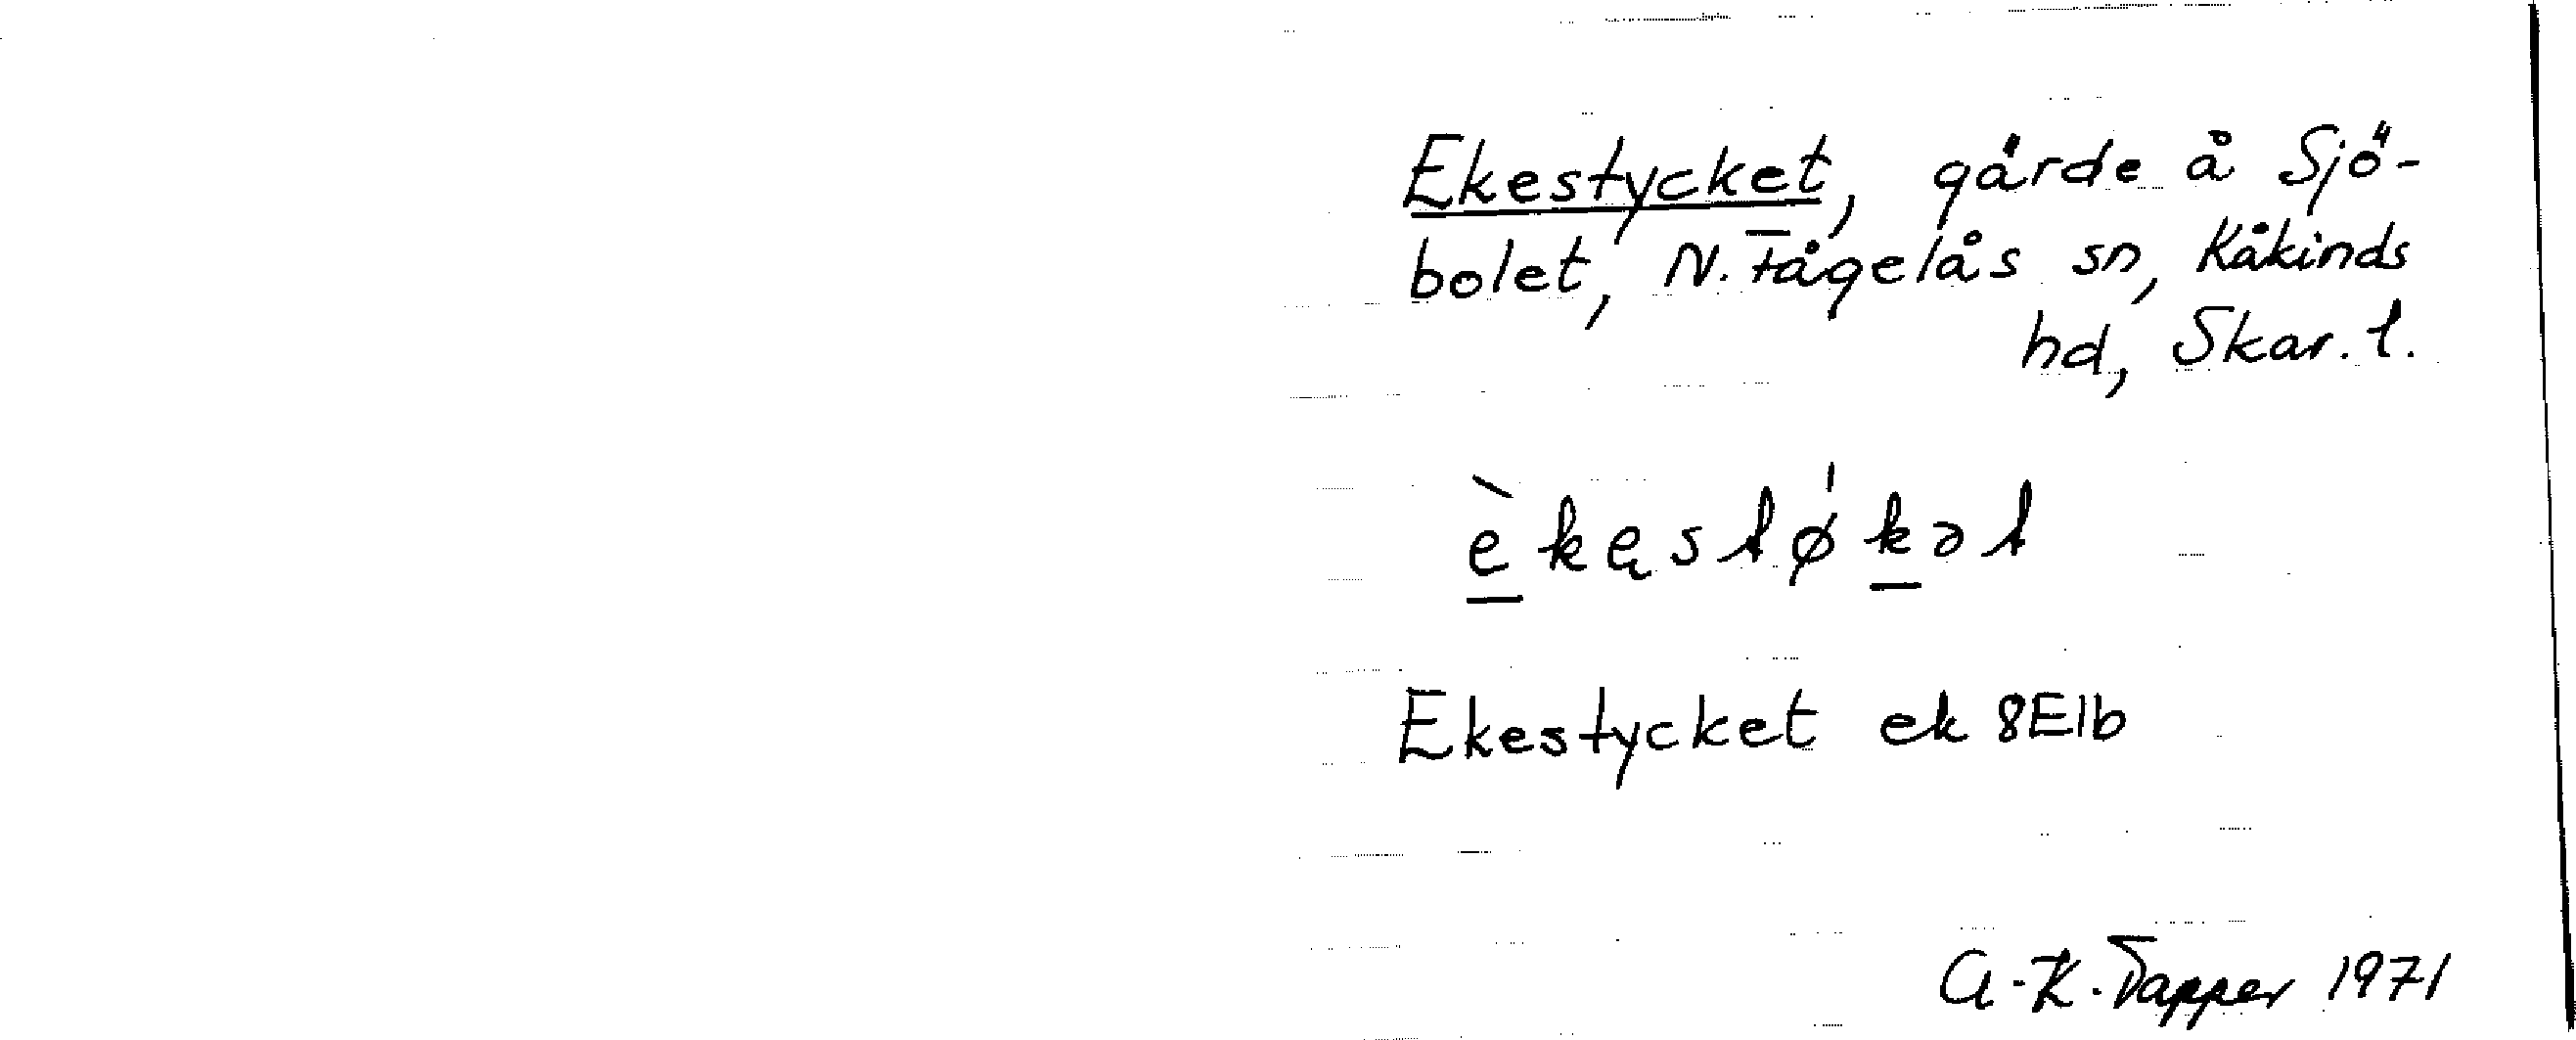 Ekestycket, gärde å Sjö-
bolet, N. Fågelås sn, Kåkinds
hd, Skar. l.
è̱kęstø̍ḵət
Ekestycket ek 8E1b
A-K. Tapper 1971